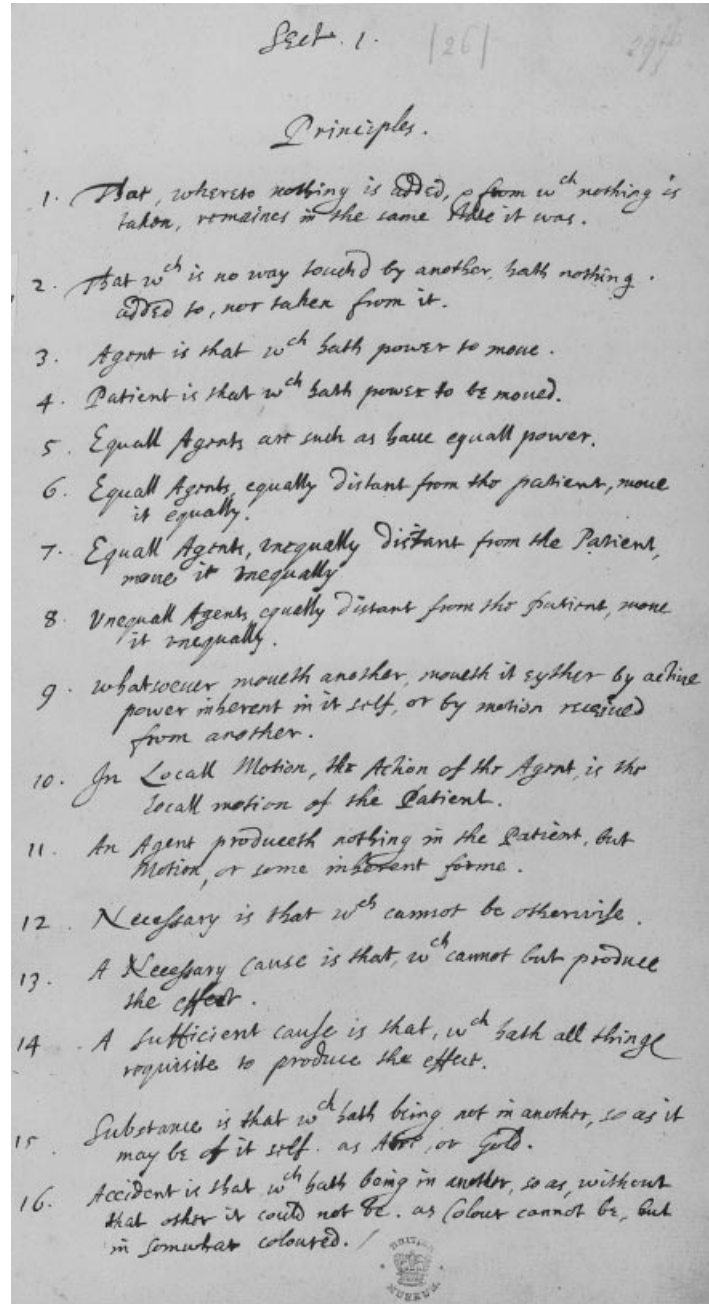 Sect. 1. |26| 297
Principles.
1. That, whereto nothing is added, & from wch nothing is
taken, remaines in the same state it was.
2. That wch is no way touchd by another, hath nothing
added to, nor taken from it.
3. Agent is that wch hath power to moue.
4. Patient is that wch hath power to be moued.
5. Equall Agents are such as haue equall power.
6. Equall Agents, equally distant from the patient, moue
it equally.
7. Equall Agents, vnequally distant from the Patient,
moue it vnequally
8. Vnequall Agents, equally distant from the patient, moue
it vnequally.
9. Whatsoeuer moueth another, moueth it eyther by actiue
power inherent in it self, or by motion receiued
from another.
10. In Locall Motion, the Action of the Agent, is the
locall motion of the Patient.
11. An Agent produceth nothing in the Patient, but
Motion, or some inherent forme.
12. Necessary is that wch cannot be otherwise.
13. A Necessary cause is that, wch cannot but produce
the effect.
14. A sufficient cause is that, wch hath all things
requisite to produce the effect.
15. Substance is that wch hath being not in another, so as it
may be of it self. as Aire, or Gold.
16. Accident is that wch hath being in another, so as, without
that other it could not be. as Colour cannot be, but
in somwhat coloured. /
BRITISH MUSEUM